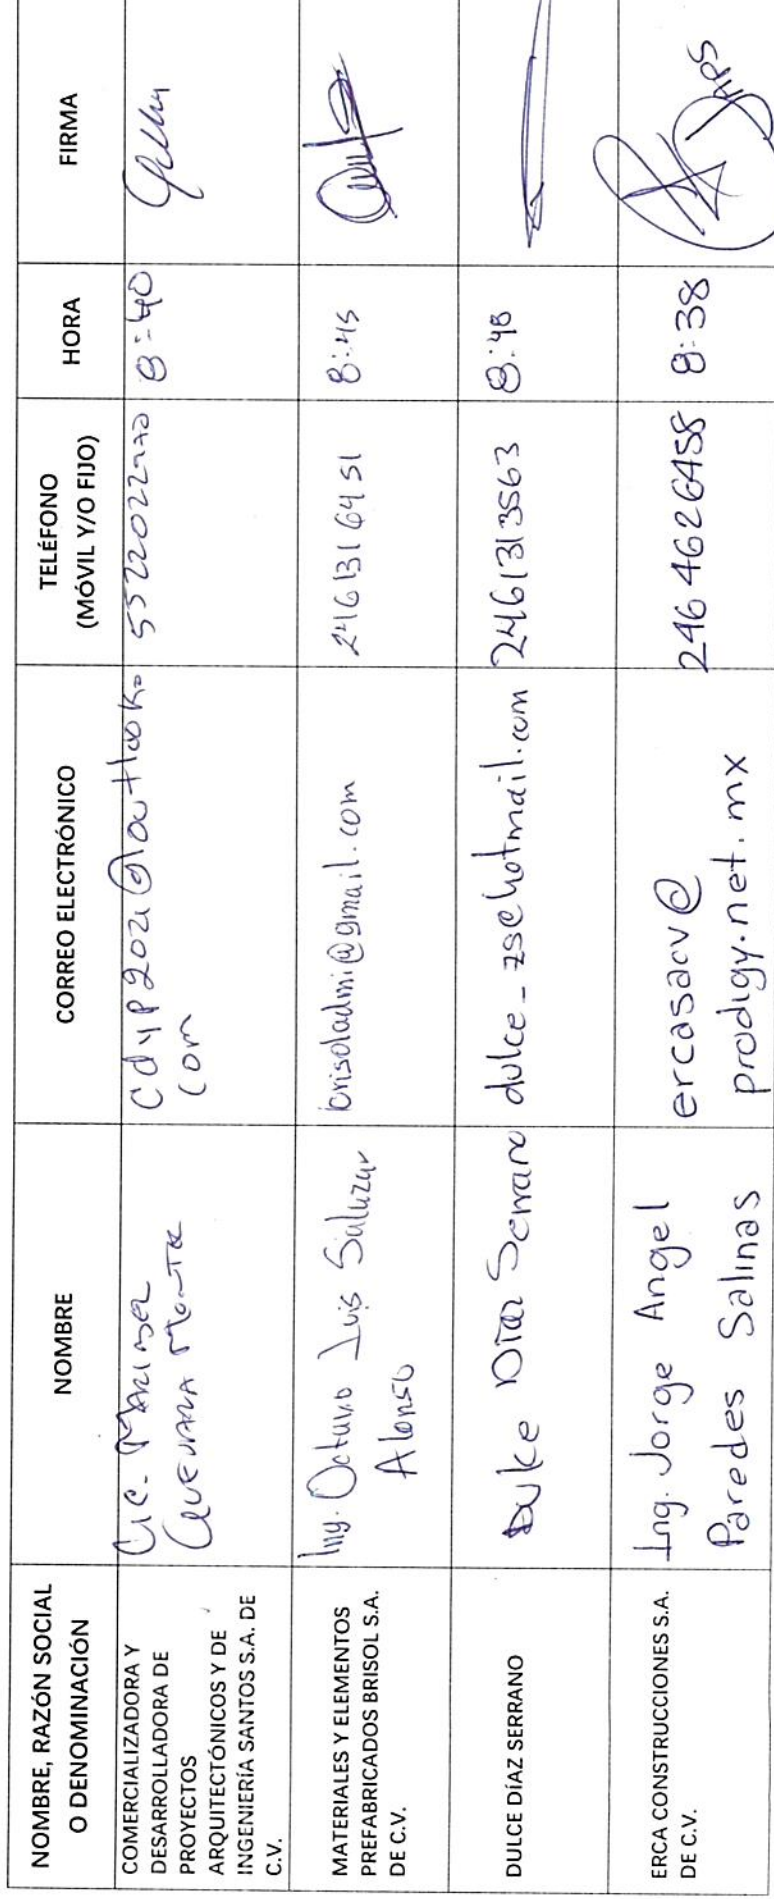 NOMBRE, RAZÓN SOCIAL
O DENOMINACIÓN
NOMBRE
CORREO ELECTRÓNICO
TELÉFONO
(MÓVIL Y/O FIJO)
HORA
FIRMA
COMERCIALIZADORA Y
DESARROLLADORA DE
PROYECTOS
ARQUITECTÓNICOS Y DE
INGENIERÍA SANTOS S.A. DE
C.V.
Lic. Marisol
Guevara
cdyp2021@outlook.
com
8:40
MATERIALES Y ELEMENTOS
PREFABRICADOS BRISOL S.A.
DE C.V.
Ing. Octavio Luis Salazar
Alonso
brisoladmi@gmail.com
246 131 64 51
8:45
DULCE DÍAZ SERRANO
Dulce Díaz Serrano
dulce_zse@hotmail.com
2461313563
8:48
ERCA CONSTRUCCIONES S.A.
DE C.V.
Ing. Jorge Angel
Paredes Salinas
ercasacv@
prodigy.net.mx
246 4626458
8:38